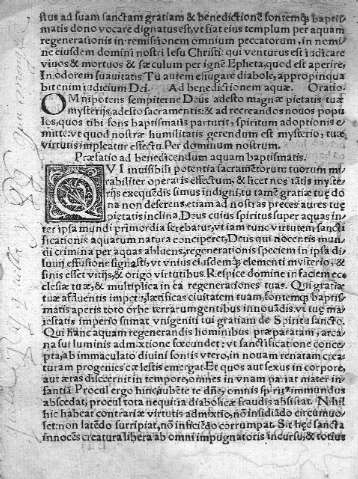 stus ad suam sanctam gratiam & benedictionē fontemq; baptis-
matis dono vocare dignatus est: vt fiat eius templum per aquam
regenerationis in remissionem omnium peccatorum, in nomi-
ne eiusdem domini nostri Iesu Christi: qui venturus est iudicare
viuos & mortuos & sæculum per ignē Ephetq; quod est aperire,
In odorem suauitatis Tu autem effugare diabole, appropinqua
bit enim iudicium Dei. Ad benedictionem aquæ. Oratio.
OMnipotens sempiterne Deus adesto magnæ pietatis tuæ
mysterijs, adesto sacramentis: & ad recreandos nouos popu
les, quos tibi fons baptismatis parturit, spiritum adoptionis e-
mitte: vt quod nostræ humilitatis gerendum est mysterio, tuæ
virtutis impleatur effectu. Per dominum nostrum.
Præfatio ad benedicendum aquam baptismatis.
QVI inuisibili potentia sacramētorum tuorum mi
rabiliter operaris effectum: & licet nos tātis myste
rijs exequēdis simus indigni: tu tamē gratiæ tuę do
na non deserens, etiam ad nostras preces aures tuę
pietatis inclina. Deus cuius spiritus super aquas in-
ter ipsa mundi primordia ferebatur, vt iam tunc virtutem sancti-
ficationis aquarum natura conciperet, Deus qui nocentis mun-
di crimina per aquas abluens, regenerationis speciem in ipsa di-
luuij effusione signasti: vt vnius eiusdemq; elementi mysterio, &
finis esset vitijs, & origo virtutibus. Respice domine in faciem ec-
clesiæ tuæ, & multiplica in ea regenerationes tuas. Qui gratiæ
tuæ affluentis impetu, lætificas ciuitatem tuam, fontemq; baptis-
matis aperis toto orbe terrarum gentibus innouādis. vt tuę ma-
iestatis imperio sumat vnigeniti tui gratiam de Spiritu sancto.
Qui hanc aquam regenerandis hominibus præparatam, arca-
na sui luminis admixtione fœcundet: vt sanctificatione conce-
pta, ab immaculato diuini fontis vtero, in nouam renatam crea-
turam progenies cælestis emergat. Et quos aut sexus in corpore,
aut ætas discernit in tempore, omnes in vnam pariat mater in-
fantiā. Procul ergo hinc, iubēte te dñe, omnis spiritus immundus
abscedat, procul tota nequitia diabolicæ fraudis absistat. Nihil
hic habeat contrariæ virtutis admixtio, nō insidiādo circumuo-
let: non latēdo surripiat, nō inficiēdo corrumpat. Sit hæc sancta
innocēs creatura libera ab omni impugnatoris incursu, & totius